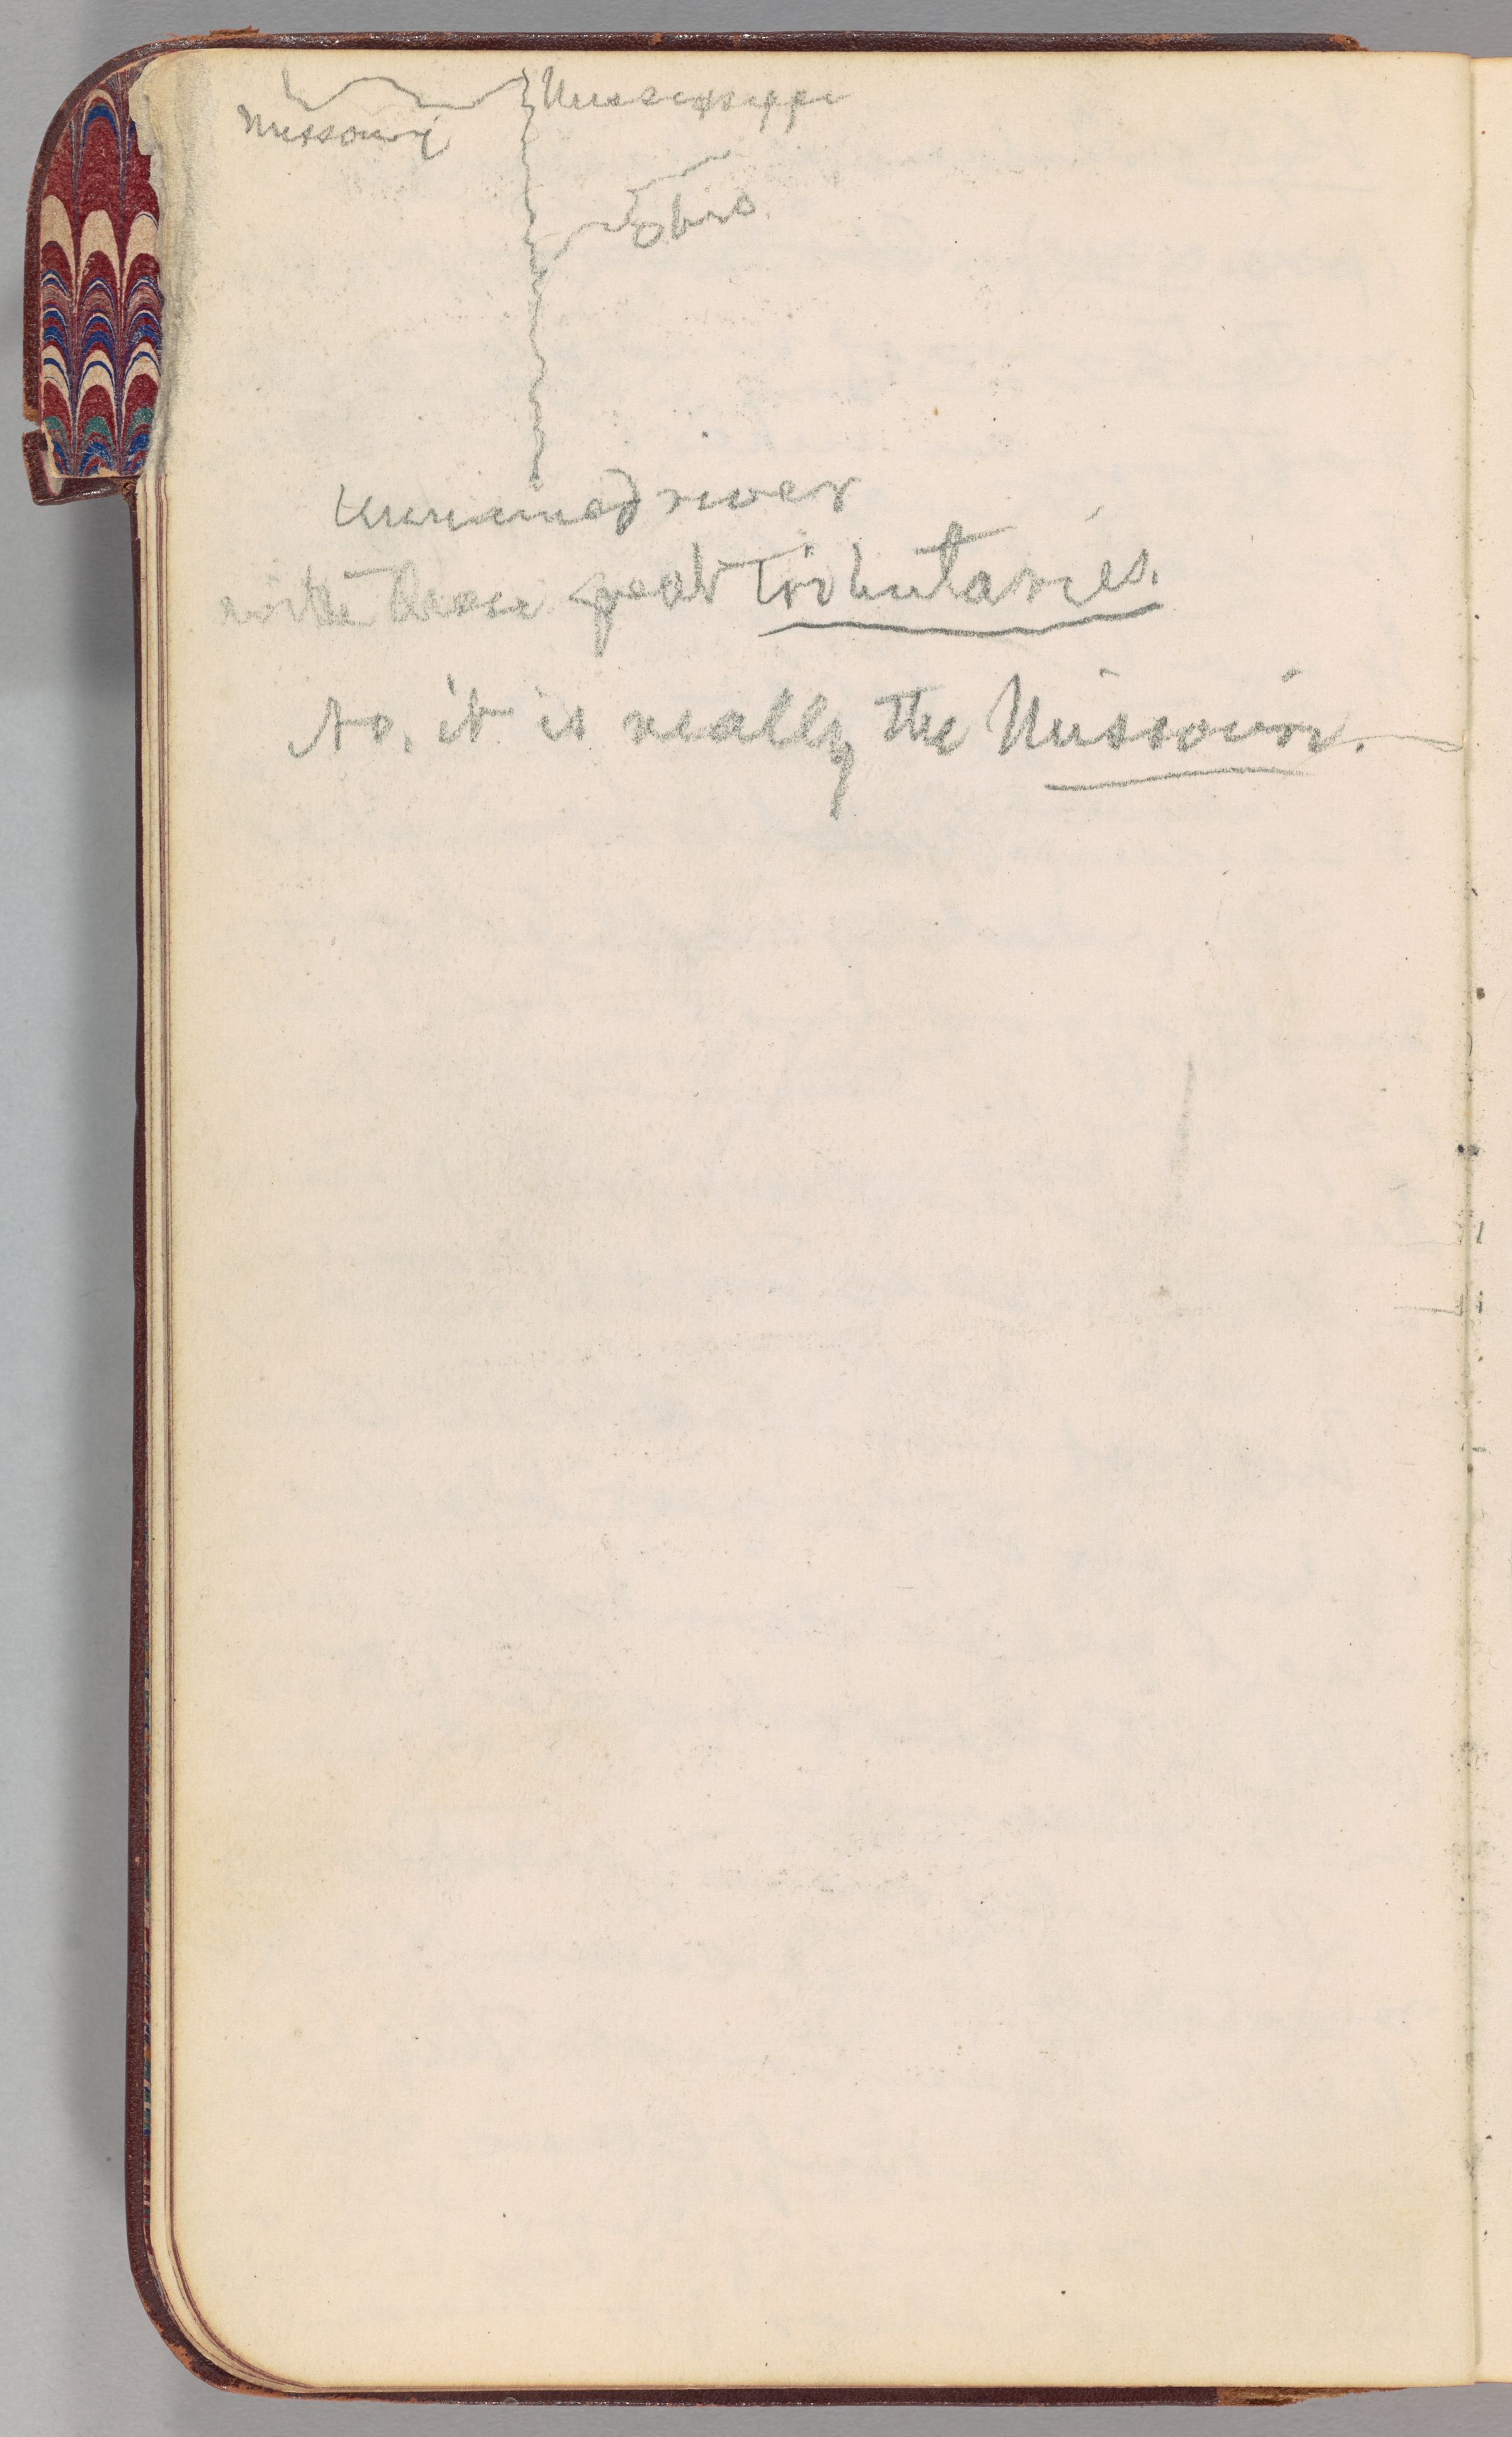 Mississippi
Missouri
Ohio
Unnamed river
with these great tributaries.
No, it is really the Missouri.